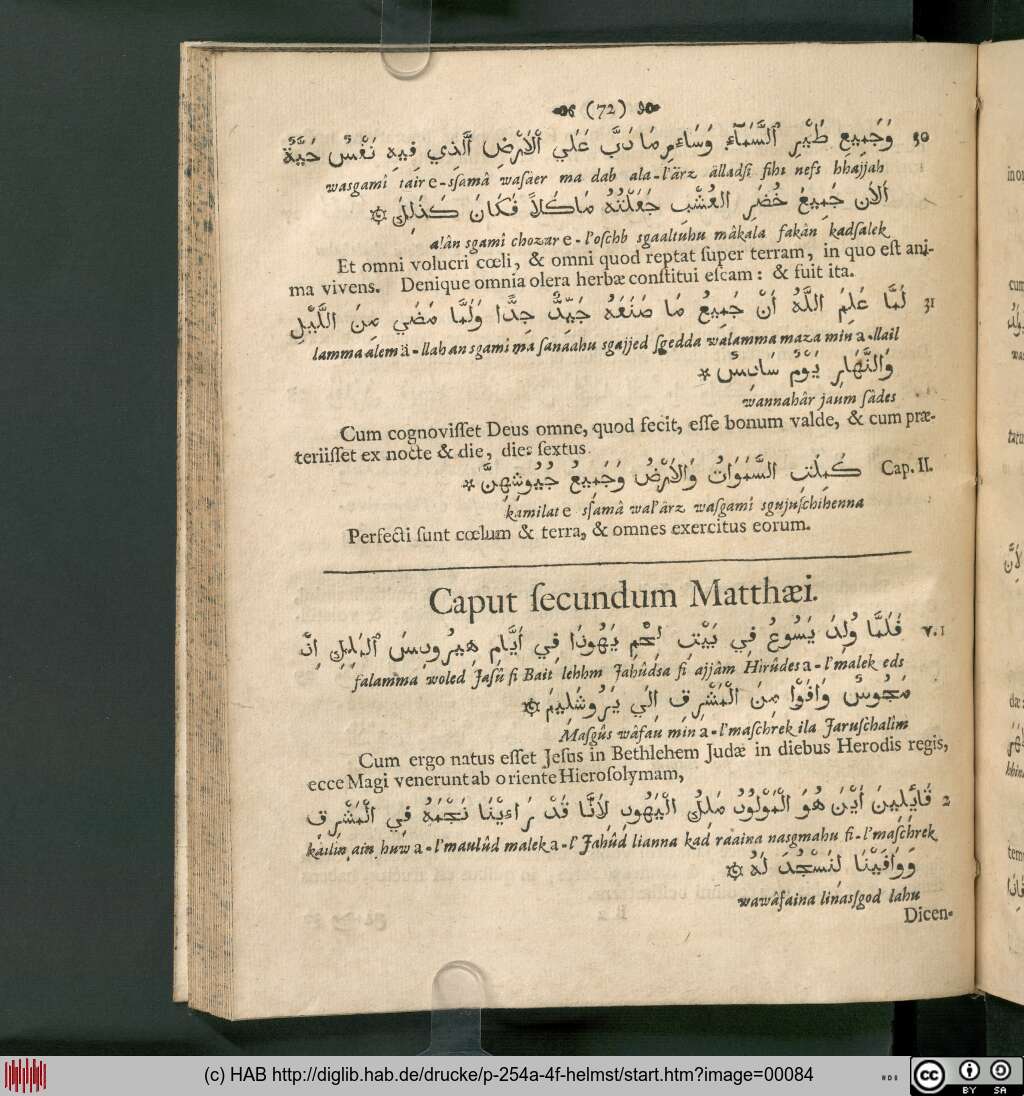 (72)
وَجَمِيعِ طَيْرِ ٱلسَّمَآءِ وَسَاءَرِ مَا دَبَّ عَلَي ٱلْاَرْضِ ٱلَّذِي فِيهِ نَفْسٌ حَيَّةٌ 30
wasgamî tair e-sſamâ waſaer ma dab ala-l'ärz älladſi fihi nefs hhajjah
أَلاَن جَمِيعُ خُضَرِ العُشْبِ جَعَلْتُهُ مَاكَلاً فَكَانَ كَذٰلِكَ
alân sgamî chozar e-l'oſchb sgaaltuhu mâkala fakân kadſalek
Et omni volucri cœli, & omni quod reptat ſuper terram, in quo eſt ani-
ma vivens. Denique omnia olera herbæ conſtitui eſcam: & fuit ita.
لَمَّا عَلِمَ اللَّهُ أَنْ جَمِيعُ مَا صَنَعَهُ جَيِّدٌ جِدًّا وَلَمَّا مَضَي مِنَ اللَّيْلِ 31
lamma alem ä-llah an sgamî ma ſanaahu sgajjed ſgedda walamma maza min a-llail
وَالنَّهَارِ يَوْمٌ سَادِسٌ
wannahâr jaum ſâdes
Cum cognoviſſet Deus omne, quod fecit, eſſe bonum valde, & cum præ-
teriiſſet ex nocte & die, dies ſextus.
كَمِلَتِ السَّمَوَاتُ وَالاَرْضُ وَجَمِيعُ جُيُوشِهِنَّ Cap. II.
kamilat e sſamâ wal'ärz waſgamî sgujuſchihenna
Perfecti ſunt cœlum & terra, & omnes exercitus eorum.
Caput ſecundum Matthæi.
فَلَمَّا وُلِدَ يَسُوعُ فِي بَيْتِ لَحْمِ يَهُودَا فِي أَيَّامِ هِيرُودِسَ ٱلمَلِكِ اِذَّ v. 1
falamma woled Jaſû fi Bait lehhm Jahûdsa fi ajjâm Hirûdes a-l'malek eds
مَجُوسٌ وَافَوْا مِنَ الْمَشْرِقِ اِلَي يَرُوشَلِيمَ
Maſgûs wâfau min a-l'maſchrek ila Jaruſchalîm
Cum ergo natus eſſet Jeſus in Bethlehem Judæ in diebus Herodis regis,
ecce Magi venerunt ab oriente Hieroſolymam,
قَائِلِينَ أَيْنَ هُوَ الْمَوْلُودُ مَلِكُ الْيَهُودِ لاَنَّنَا قَدْ رَاءَيْنَا نَجْمَهُ فِي الْمَشْرِقِ 2
kailin ain huw a-l'maulûd malek a-l' Jahûd lianna kad râaina nasgmahu fi-l'maſchrek
وَوَافَيْنَا لِنَسْجُدَ لَهُ
wawâfaina linasſgod lahu
Dicen-
(c) HAB http://diglib.hab.de/drucke/p-254a-4f-helmst/start.htm?image=00084
cc BY SA